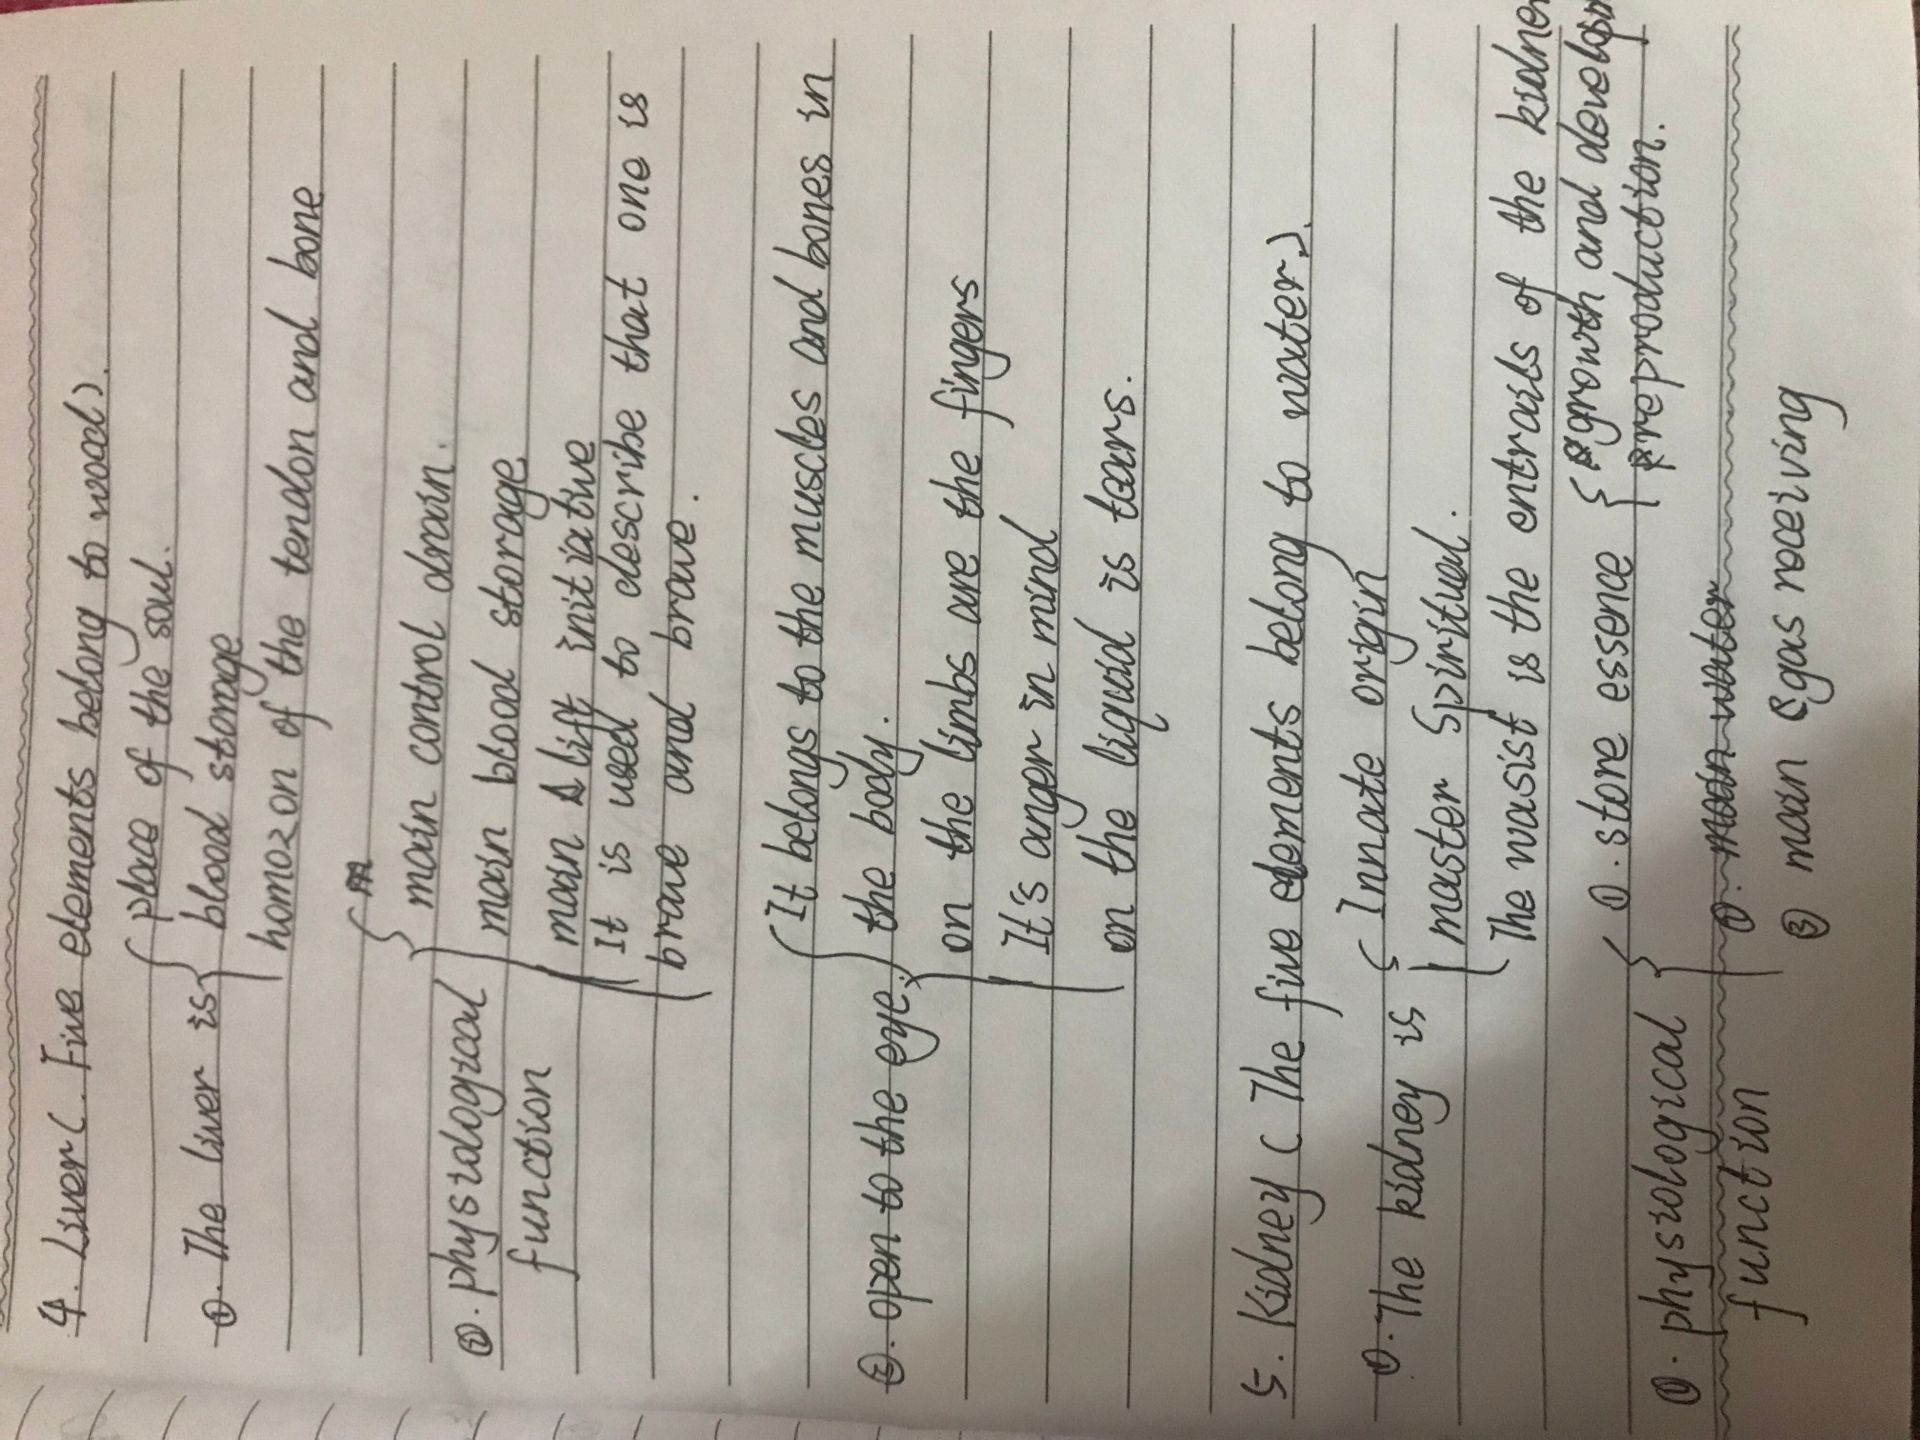 4. Liver (Five elements belong to wood).
place of the soul.
①. The liver is
blood storage
homozon of the tendon and bone
main control drain.
②. physiological function
main blood storage.
main lift initiative
It is used to describe that one is
brave and brave.
It belongs to the muscles and bones in
the body.
③. open to the eye.
on the limbs are the fingers
It's anger in mind
on the liquid is tears.
5. Kidney (The five elements belong to water).
①. The kidney is
Innate origin
master spiritual.
The wasist is the entrails of the kidney
①. store essence
growth and develop
reproduction.
physiological function
main water
② main gas receiving